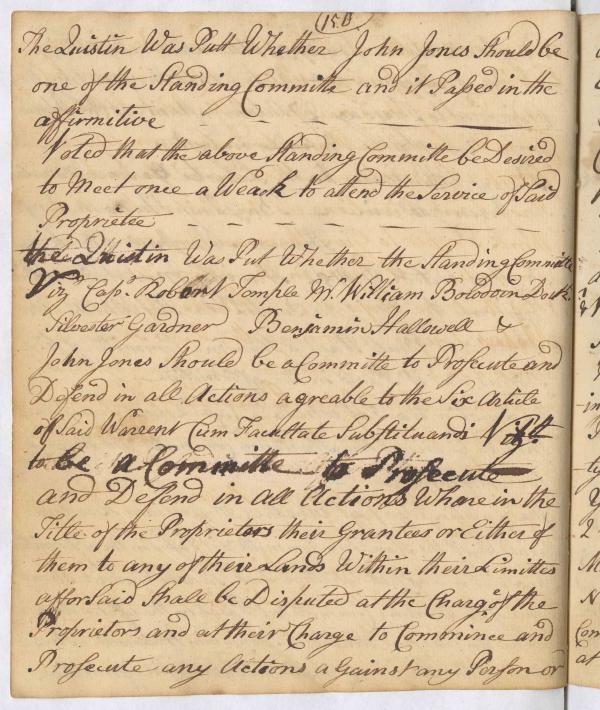 150
The Quistin Was Putt Whether John Jones Should be
one of the Standing Committe and it Passed in the
affirmitive
Voted that the above Standing Committe be Desired
to Meet once a Weack to attend the Service of Said
Proprietee
the Quistin Was Put Whether the Standing Committe
Viz Capt. Robert Temple Mr. William Bowdoin Doctr.
Silvester Gardner Benjamin Hallowell &
John Jones Should be a Committe to Prosecute and
Defend in all Actions agreable to the Six Article
of Said Warrent Cum Facultate Substituandi Vizt
to be a Committe to Prosecute
and Defend in all Actions Where in the
Title of the Proprietors their Grantees or Either of
them to any of their Lands Within their Limittes
afforSaid Shale be Disputed at the Charge of the
Proprietors and at their Charge to Commince and
Prosecute any Actions a Gainst any Person or